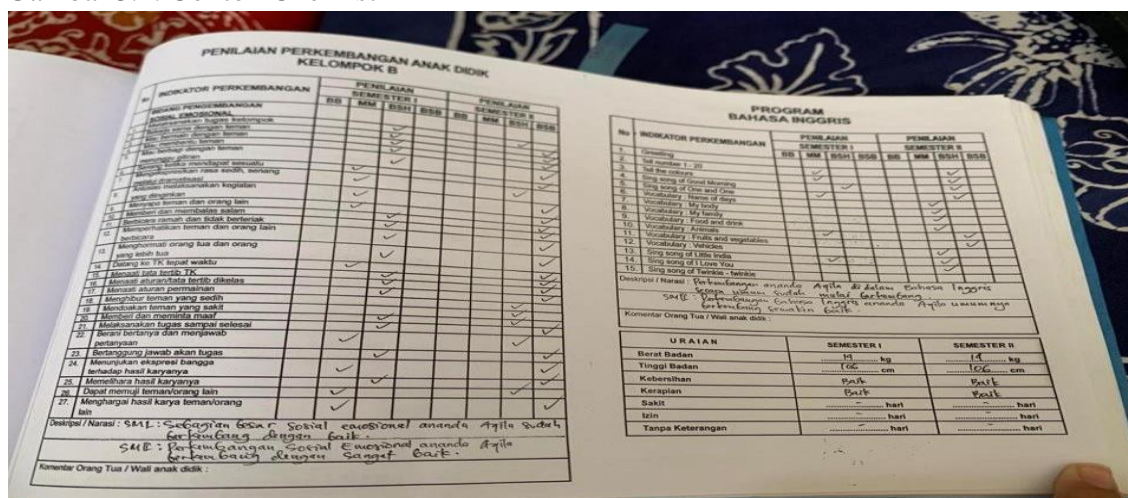 PENILAIAN PERKEMBANGAN ANAK DIDIK
KELOMPOK B
No INDIKATOR PERKEMBANGAN PENILAIAN PENILAIAN
SEMESTER I SEMESTER II
BIDANG PENGEMBANGAN BB MM BSH BSB BB MM BSH BSB
SOSIAL EMOSIONAL
Melaksanakan tugas kelompok
Bekerja sama dengan teman
Mau bermain dengan teman
Mau membantu teman
Mau berbagi dengan teman
menunggu giliran
Senang ketika mendapat sesuatu
Mengekspresikan rasa sedih, senang
melalui dramatisasi
Antusias melaksanakan kegiatan
yang diinginkan
Menyapa teman dan orang lain
10. Memberi dan membalas salam
11. Berbicara ramah dan tidak berteriak
12. Memperhatikan teman dan orang lain
berbicara
13. Menghormati orang tua dan orang
yang lebih tua
14. Datang ke TK tepat waktu
15. Menaati tata tertib TK
16. Menaati aturan/tata tertib dikelas
17. Menaati aturan permainan
18. Menghibur teman yang sedih
19. Mendoakan teman yang sakit
20. Memberi dan meminta maaf
21. Melaksanakan tugas sampai selesai
22. Berani bertanya dan menjawab
pertanyaan
23. Bertanggung jawab akan tugas
24. Menunjukan ekspresi bangga
terhadap hasil karyanya
25. Memelihara hasil karyanya
26. Dapat memuji teman/orang lain
27. Menghargai hasil karya teman/orang
lain
Deskripsi / Narasi : SMI : Sebagian besar Sosial emosional ananda Aqila sudah
berkembang dengan baik.
SMII : Perkembangan Sosial Emosional ananda Aqila
berkembang dengan Sangat Baik.
Komentar Orang Tua / Wali anak didik :
PROGRAM
BAHASA INGGRIS
No INDIKATOR PERKEMBANGAN PENILAIAN PENILAIAN
SEMESTER I SEMESTER II
BB MM BSH BSB BB MM BSH BSB
1. Greeting
2. Tell number 1 - 20
3. Tell the colours
4. Sing song of Good Morning
5. Sing song of One and One
6. Vocabulary : Name of days
7. Vocabulary : My body
8. Vocabulary : My family
9. Vocabulary : Food and drink
10. Vocabulary : Animals
11. Vocabulary : Fruits and vegetables
12. Vocabulary : Vehicles
13. Sing song of Little India
14. Sing song of I Love You
15. Sing song of Twinkle - twinkle
Deskripsi / Narasi : Perkembangan ananda Aqila di dalam Bahasa Inggris
secara umum sudah mulai berkembang.
SMII : Perkembangan Bahasa Inggris ananda Aqila umumnya
berkembang semakin baik.
Komentar Orang Tua / Wali anak didik :
URAIAN SEMESTER I SEMESTER II
Berat Badan 14 kg 14 kg
Tinggi Badan 106 cm 106 cm
Kebersihan Baik Baik
Kerapian Baik Baik
Sakit - hari - hari
Izin - hari - hari
Tanpa Keterangan - hari - hari